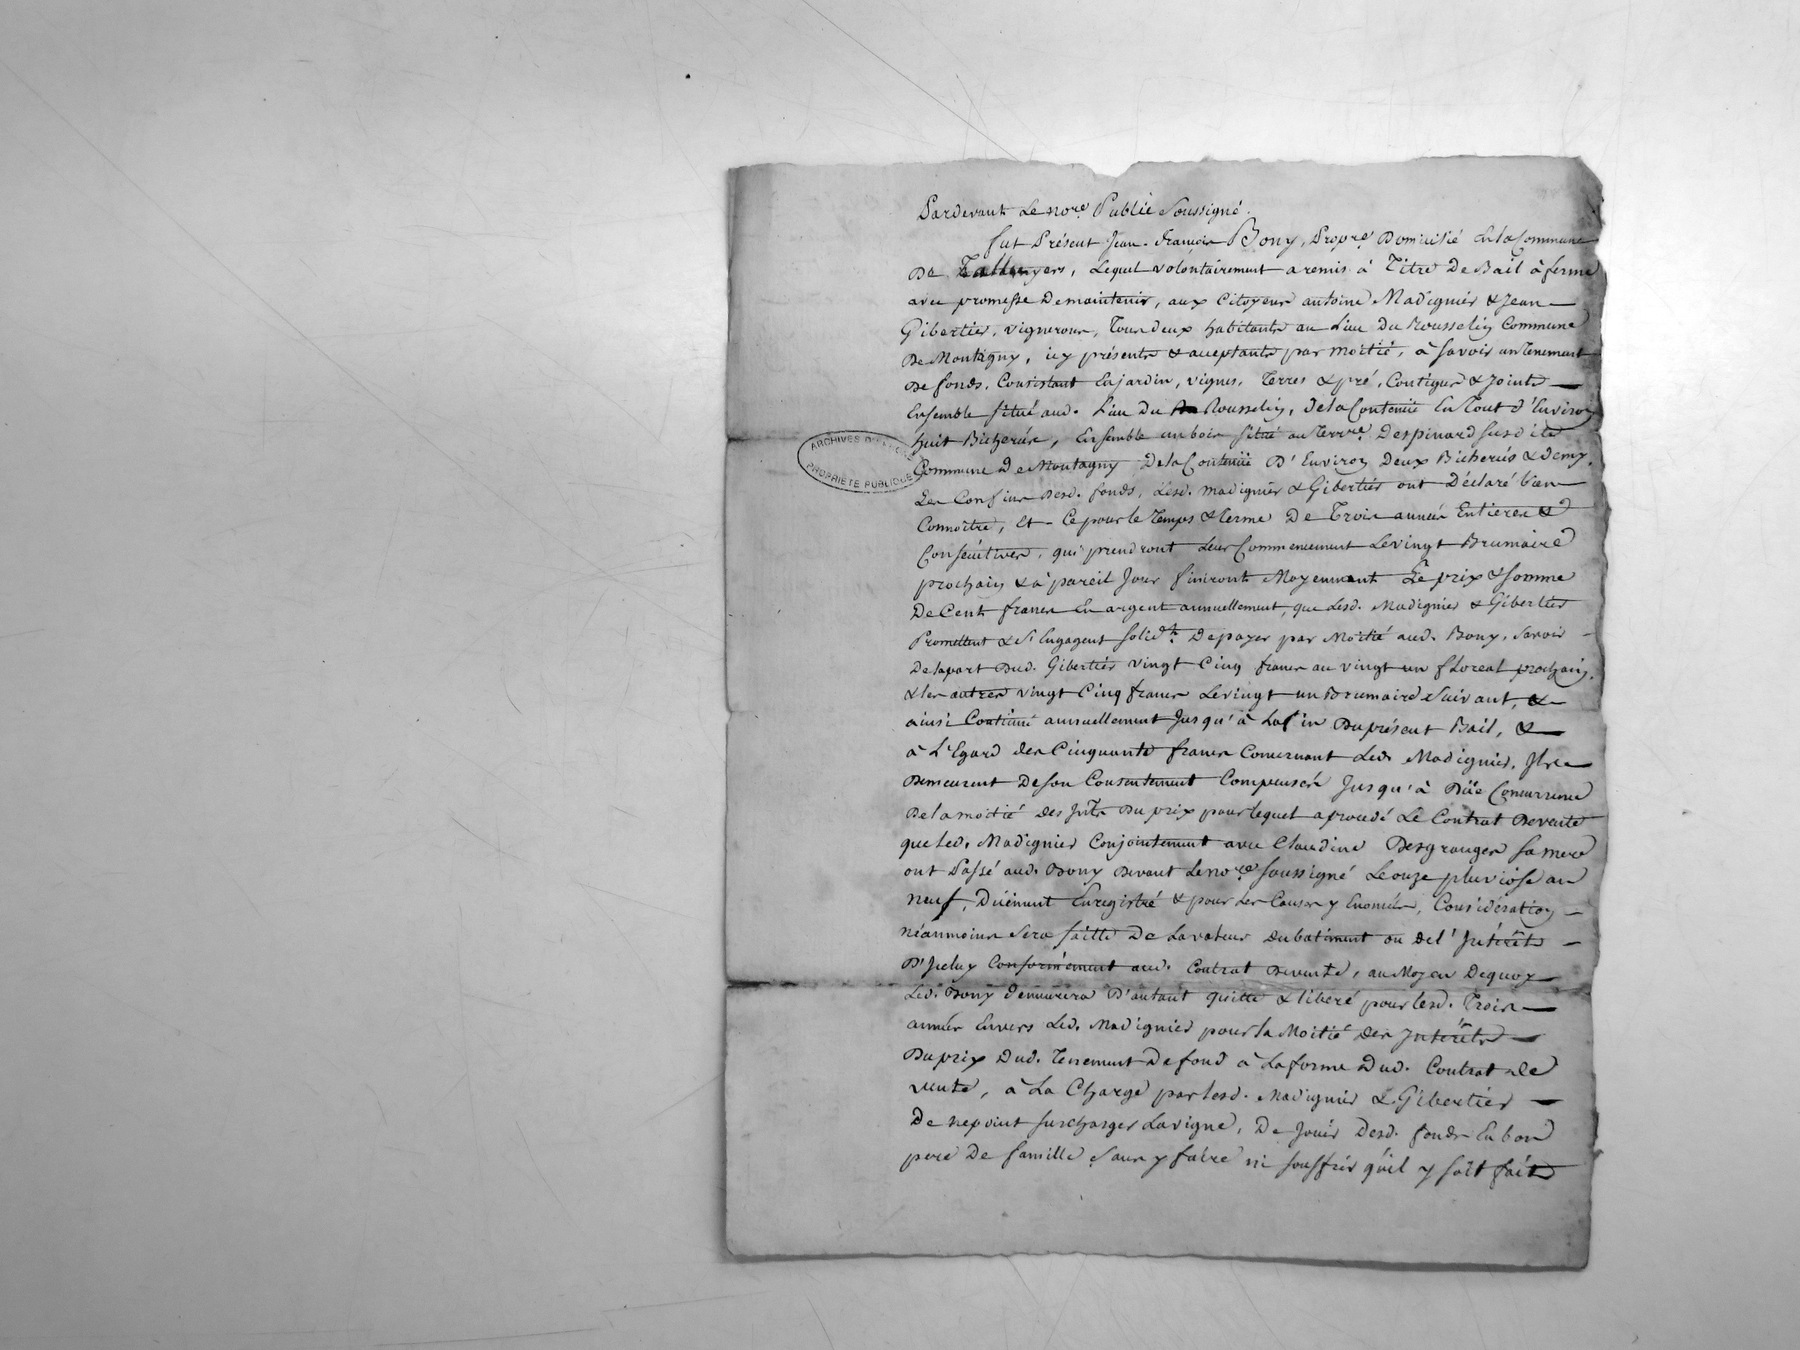 Pardevant Le nore. Public Soussigné.
fut Présent Jean-françois Bony, Propre. Domicilié En la Commune
De Talluyers, Lequel volontairement a remis à Titre De Bail à ferme
avec promesse De maintenir, aux Citoyens antoine Madignier & Jean
Gibertier, vignerons, Tous deux habitants au Lieu Du Rousselin Commune
De Montagny, icy présents & acceptants par moitié, à Savoir un Tenement
De fonds, Consistant En jardin, vignes, Terres & pré, Contigus & Joints
Ensemble situé aud. Lieu Du Rousselin, De la Contenue En Tout d'Environ
huit Bicherés, Ensemble un bois situé au Terrre. Despinard susdite
Commune De Montagny De la Contenüe D'Environ Deux Bicherés & demy,
Les Confins Desd. fonds, Lesd. Madignier & Gibertier ont Déclaré bien
Connoitre, Et Ce pour le Temps & terme De Trois années Entieres &
Consécutives, qui prendront Leur Commencement Le vingt Brumaire
prochain & à pareil Jour finiront Moyennant Le prix & somme
De Cent francs En argent annuellement, que Lesd. Madignier & Gibertier
Promettent & S'Engagent solidt. De payer par Moitié aud. Bony, Savoir
De la part Dud. Gibertier vingt Cinq francs au vingt un floreal prochain,
& les autres vingt Cinq francs Le vingt un Brumaire Suivant, &
ainsi Continué annuellement Jusqu'à La fin Du présent Bail, &
à L'Egard des Cinquante francs Concernant Led. Madignier, Ils
Demeurent De son Consentement Compensés Jusqu'à Düe Concurrence
De la moitié des Jnts. Du prix pour lequel a procedé Le Contrat De vente
que Led. Madignier Conjointement avec Claudine Desgranges sa mere
ont Passé aud. Bony Devant Le nore. soussigné Le onze pluviôse an
neuf, Düement Enregistré & pour Les Causes y Enoncées, Considération
néanmoins Sera faitte De La valeur Du batiment ou De l'Jntérêt
D'Jceluy Conformément aud. Contrat De vente, au Moyen De quoy
Led. Bony demeurera D'autant quitte & libéré pour Lesd. Trois
années Envers Led. Madignier pour la Moitié des Jntérêts
Du prix Dud. Tenement De fond à La forme Dud. Contrat de
vente, à La Charge par Lesd. Madignier & Gibertier
De ne point surcharger La vigne, De Jouir Desd. fonds En bon
pere De famille Sans y faire ni souffrir qu'il y soit fait
ARCHIVES DU RHÔNE
PROPRIÉTÉ PUBLIQUE